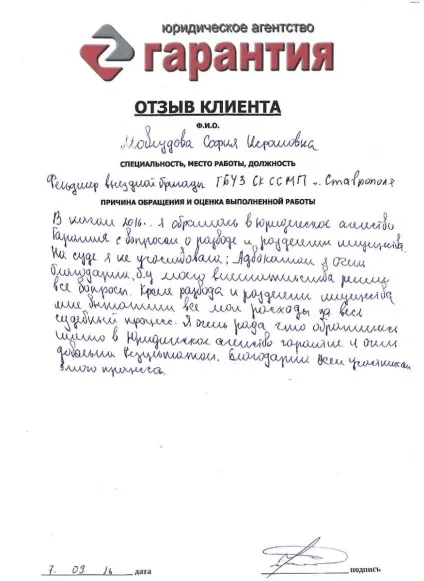 юридическое агентство
гарантия
ОТЗЫВ КЛИЕНТА
Ф.И.О.
София
СПЕЦИАЛЬНОСТЬ, МЕСТО РАБОТЫ, ДОЛЖНОСТЬ
Фельдшер выездной бригады ГБУЗ СК ССМП г. Ставрополя
ПРИЧИНА ОБРАЩЕНИЯ И ОЦЕНКА ВЫПОЛНЕННОЙ РАБОТЫ
В 2016. я обратилась в юридическое агенство
Гарантия с вопросом о разводе и разделении имущества.
На суде я не Адвокатом я очень
благодарна. без моего вмешательства решили
все вопросы. Кроме развода и разделении имущества
мне выплатили все мои расходы за весь
судебный процесс. Я очень рада что обратилась
именно в Юридическое агенство гарантия. и очень
довольна Результатом. Благодарна всем участникам
этого процесса.
7. 09. 16 дата
подпись